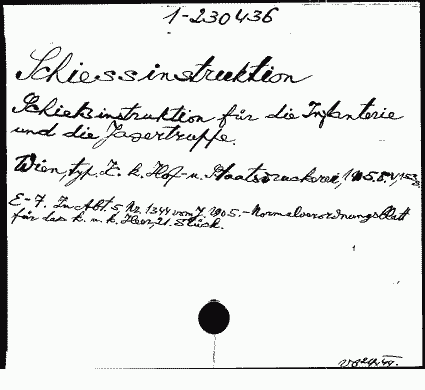 1-230436
Schiessinstruktion
Schießinstruktion für die Infanterie
und die Jägertruppe.
Wien, typ. K. k. Hof- u. Staatsdruckerei, 1905. 8.
E-7. In Abt. 5. Nr. 1344 vom J. 1905. - Normalverordnungsblatt
für das k. u. k. Heer, 21. Stück.